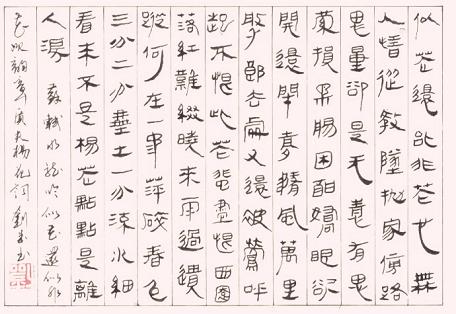 似花還似非花也無
人惜從教墜抛家傍路
思量卻是无意有思
縈損柔腸困酣嬌眼欲
開還閉夢隨風萬里
尋郎去處又還被鶯呼
起不恨此花飛盡恨西園
落紅難綴曉來雨過遺
蹤何在一事萍碎春色
三分二分塵土一分流水細
看來不是楊花點點是離
人淚 蘇軾水龍吟似花還似非
花次韻章質夫楊花詞 劉書